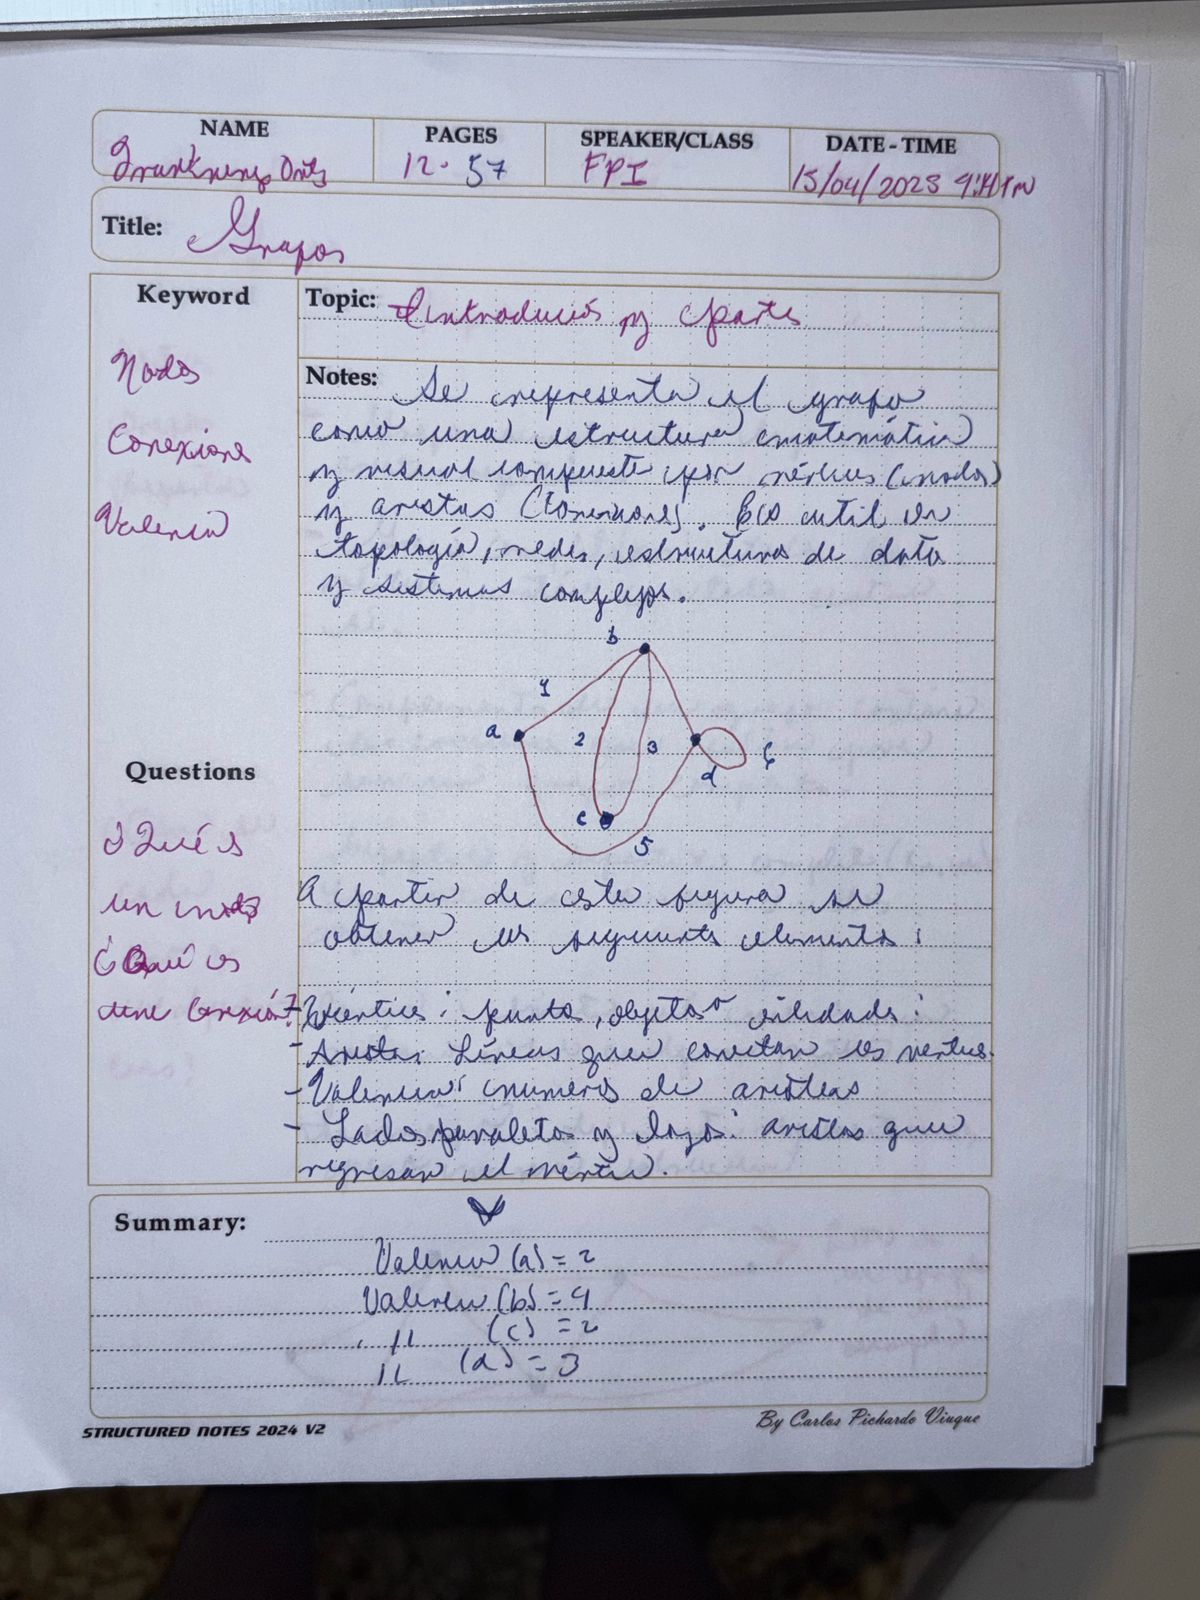 NAME
PAGES
SPEAKER/CLASS
DATE - TIME
12 - 57
FPI
15/04/2025 9:14 PM
Title: Grafos
Keyword
Nodos
Conexiones
Valencia
Topic: Introducción y partes
Notes: Se representa el grafo
como una estructura matemática
y visual compuesta por vértices (nodos)
y aristas (Conexiones). Es útil en
topología, redes, estructuras de datos
y sistemas complejos.
b
1
a
2
3
6
d
c
5
Questions
¿Qué es
un nodo
¿Qué es
una conexión?
A partir de esta figura se
obtienen los siguientes elementos:
- Vértices: puntos, objetos o entidades:
- Aristas: Líneas que conectan los vértices.
- Valencia: números de aristas
- Lados paralelos y lazos: aristas que
regresan al vértice.
Summary:
Valencia (a) = 2
Valencia (b) = 4
" (c) = 2
" (d) = 3
STRUCTURED NOTES 2024 V2
By Carlos Pichardo Viuque